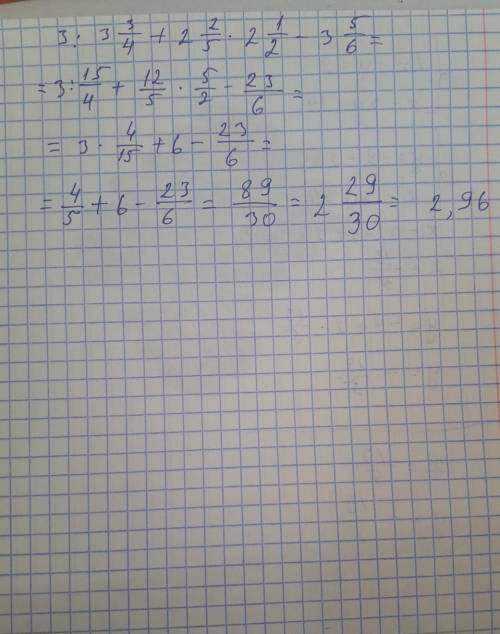 3 : 3 3/4 + 2 2/5 · 2 1/2 - 3 5/6 =
= 3 : 15/4 + 12/5 · 5/2 - 23/6 =
= 3 · 4/15 + 6 - 23/6 =
= 4/5 + 6 - 23/6 = 89/30 = 2 29/30 = 2,96